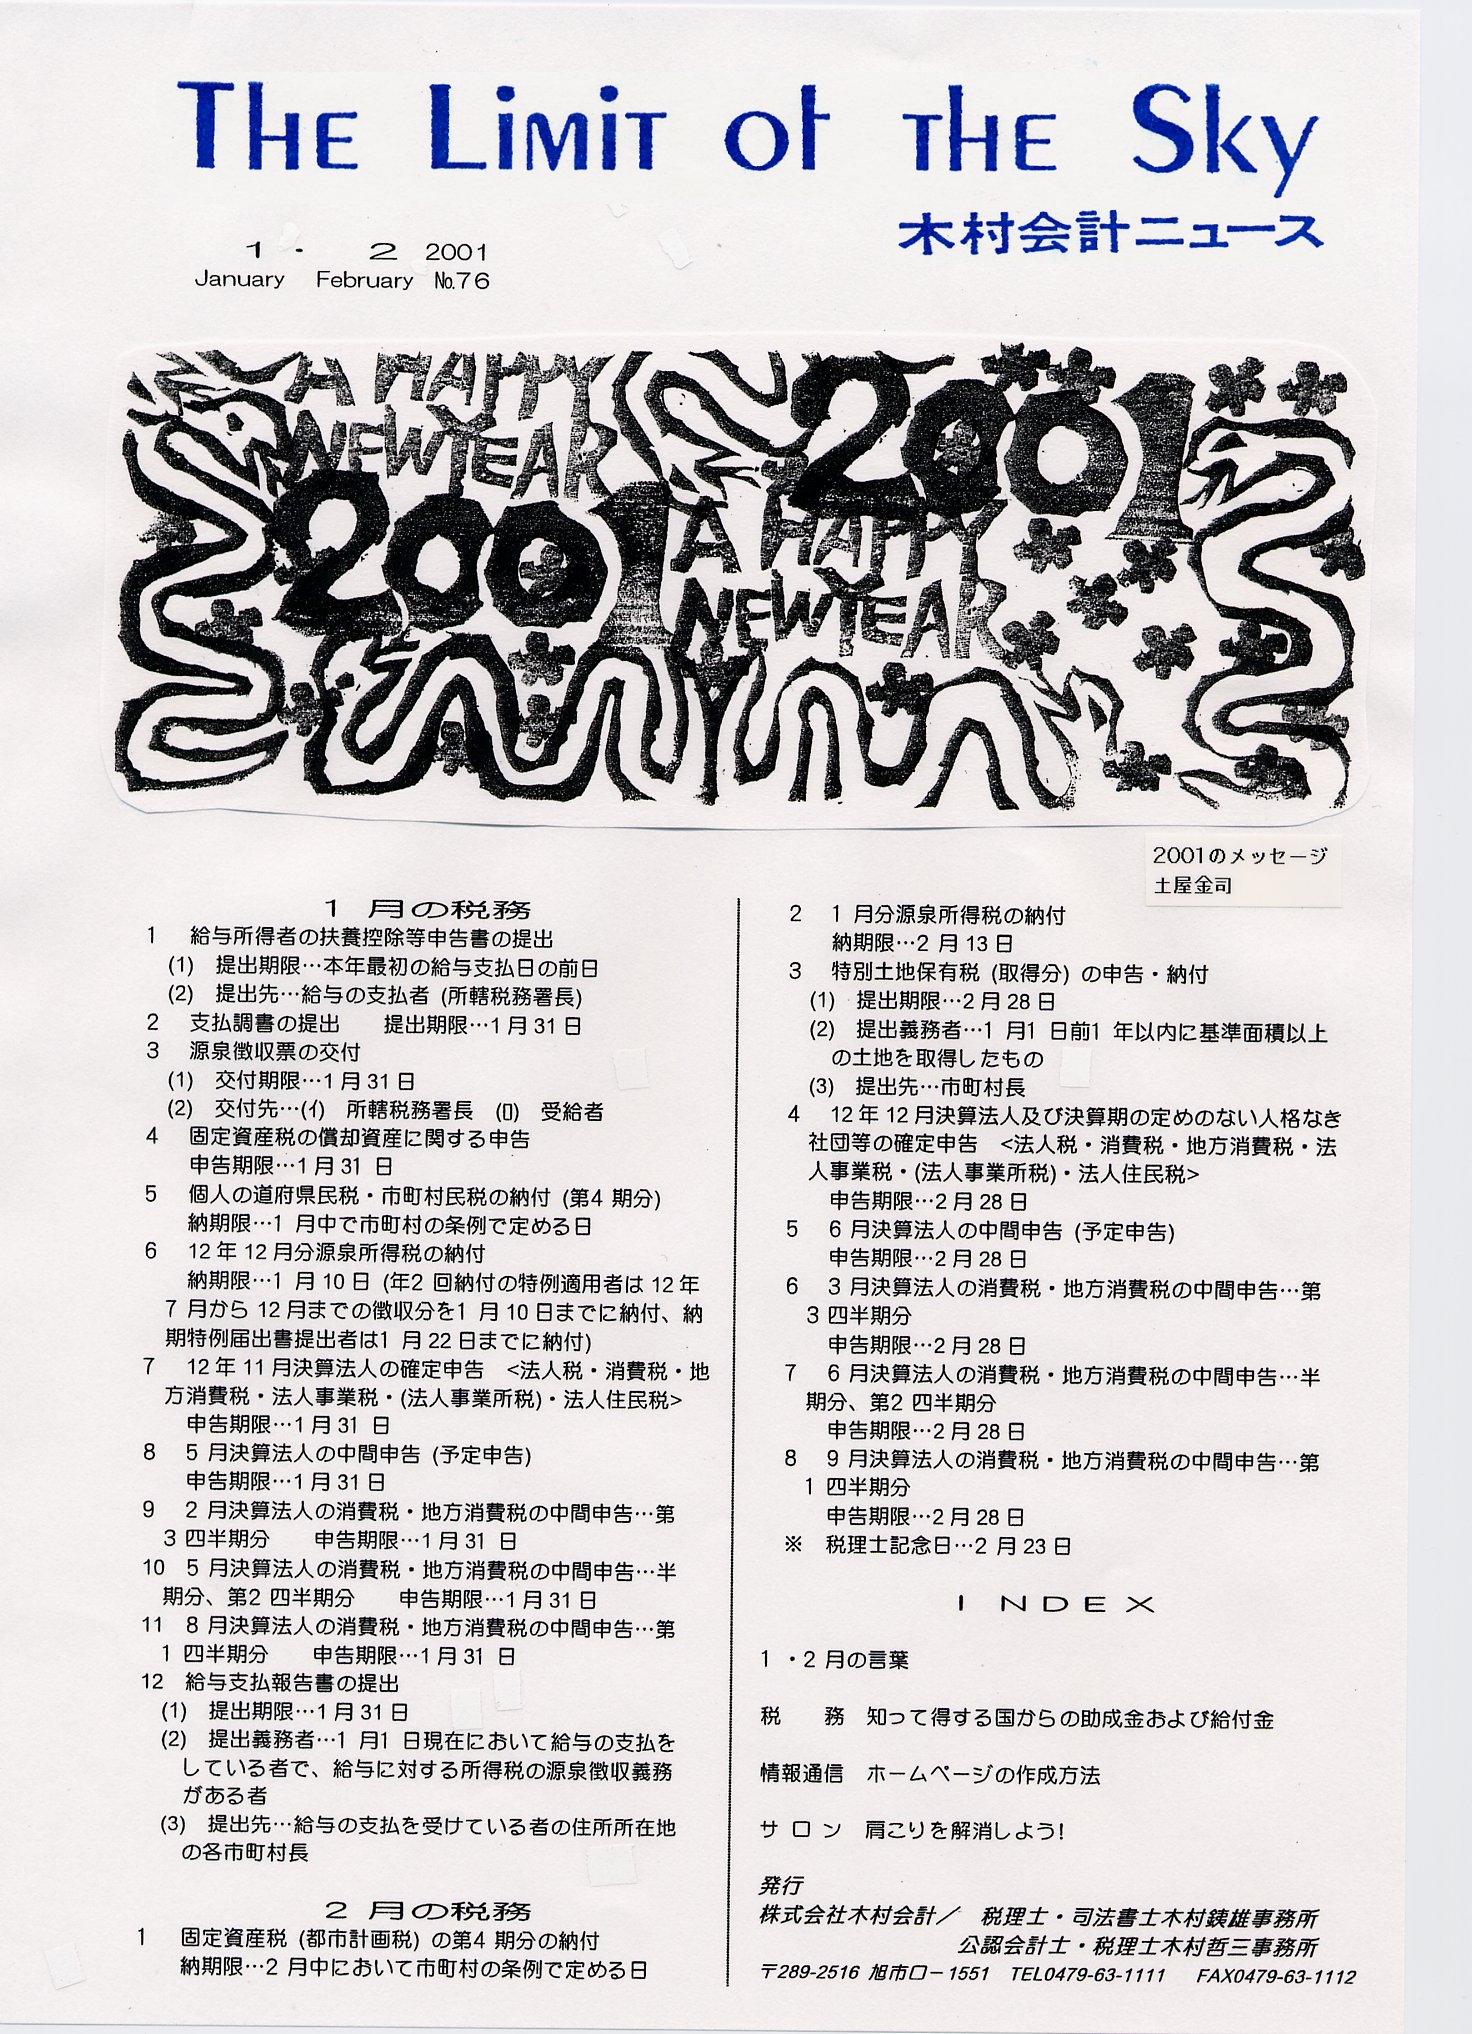 The Limit of the Sky
木村会計ニュース
1・ 2 2001
January February №76
A HAPPY
NEW YEAR
2001
2001
A HAPPY
NEW YEAR
2001のメッセージ
土屋金司
1 月の税務
1 給与所得者の扶養控除等申告書の提出
(1) 提出期限…本年最初の給与支払日の前日
(2) 提出先…給与の支払者 (所轄税務署長)
2 支払調書の提出 提出期限…1月31日
3 源泉徴収票の交付
(1) 交付期限…1月31日
(2) 交付先…(イ) 所轄税務署長 (ロ) 受給者
4 固定資産税の償却資産に関する申告
申告期限…1月31 日
5 個人の道府県民税・市町村民税の納付 (第4 期分)
納期限…1 月中で市町村の条例で定める日
6 12年12月分源泉所得税の納付
納期限…1 月10日 (年2 回納付の特例適用者は12年
7 月から12月までの徴収分を1 月10日までに納付、納
期特例届出書提出者は1 月22日までに納付)
7 12年11月決算法人の確定申告 <法人税・消費税・地
方消費税・法人事業税・(法人事業所税)・法人住民税>
申告期限…1月31 日
8 5 月決算法人の中間申告 (予定申告)
申告期限…1月31日
9 2 月決算法人の消費税・地方消費税の中間申告…第
3 四半期分 申告期限…1月31 日
10 5 月決算法人の消費税・地方消費税の中間申告…半
期分、第2 四半期分 申告期限…1月31日
11 8 月決算法人の消費税・地方消費税の中間申告…第
1 四半期分 申告期限…1月31 日
12 給与支払報告書の提出
(1) 提出期限…1月31日
(2) 提出義務者…1 月1 日現在において給与の支払を
している者で、給与に対する所得税の源泉徴収義務
がある者
(3) 提出先…給与の支払を受けている者の住所所在地
の各市町村長
2 月の税務
1 固定資産税 (都市計画税) の第4 期分の納付
納期限…2 月中において市町村の条例で定める日
2 1 月分源泉所得税の納付
納期限…2 月13日
3 特別土地保有税 (取得分) の申告・納付
(1) 提出期限…2月28日
(2) 提出義務者…1 月1 日前1 年以内に基準面積以上
の土地を取得したもの
(3) 提出先…市町村長
4 12年12月決算法人及び決算期の定めのない人格なき
社団等の確定申告 <法人税・消費税・地方消費税・法
人事業税・(法人事業所税)・法人住民税>
申告期限…2月28日
5 6 月決算法人の中間申告 (予定申告)
申告期限…2月28日
6 3 月決算法人の消費税・地方消費税の中間申告…第
3 四半期分
申告期限…2月28日
7 6 月決算法人の消費税・地方消費税の中間申告…半
期分、第2 四半期分
申告期限…2月28日
8 9 月決算法人の消費税・地方消費税の中間申告…第
1 四半期分
申告期限…2月28日
※ 税理士記念日…2 月23日
INDEX
1 ・2 月の言葉
税 務 知って得する国からの助成金および給付金
情報通信 ホームページの作成方法
サ ロ ン 肩こりを解消しよう!
発行
株式会社木村会計/ 税理士・司法書士木村銕雄事務所
公認会計士・税理士木村哲三事務所
〒289-2516 旭市ロ－1551 TEL0479-63-1111 FAX0479-63-1112